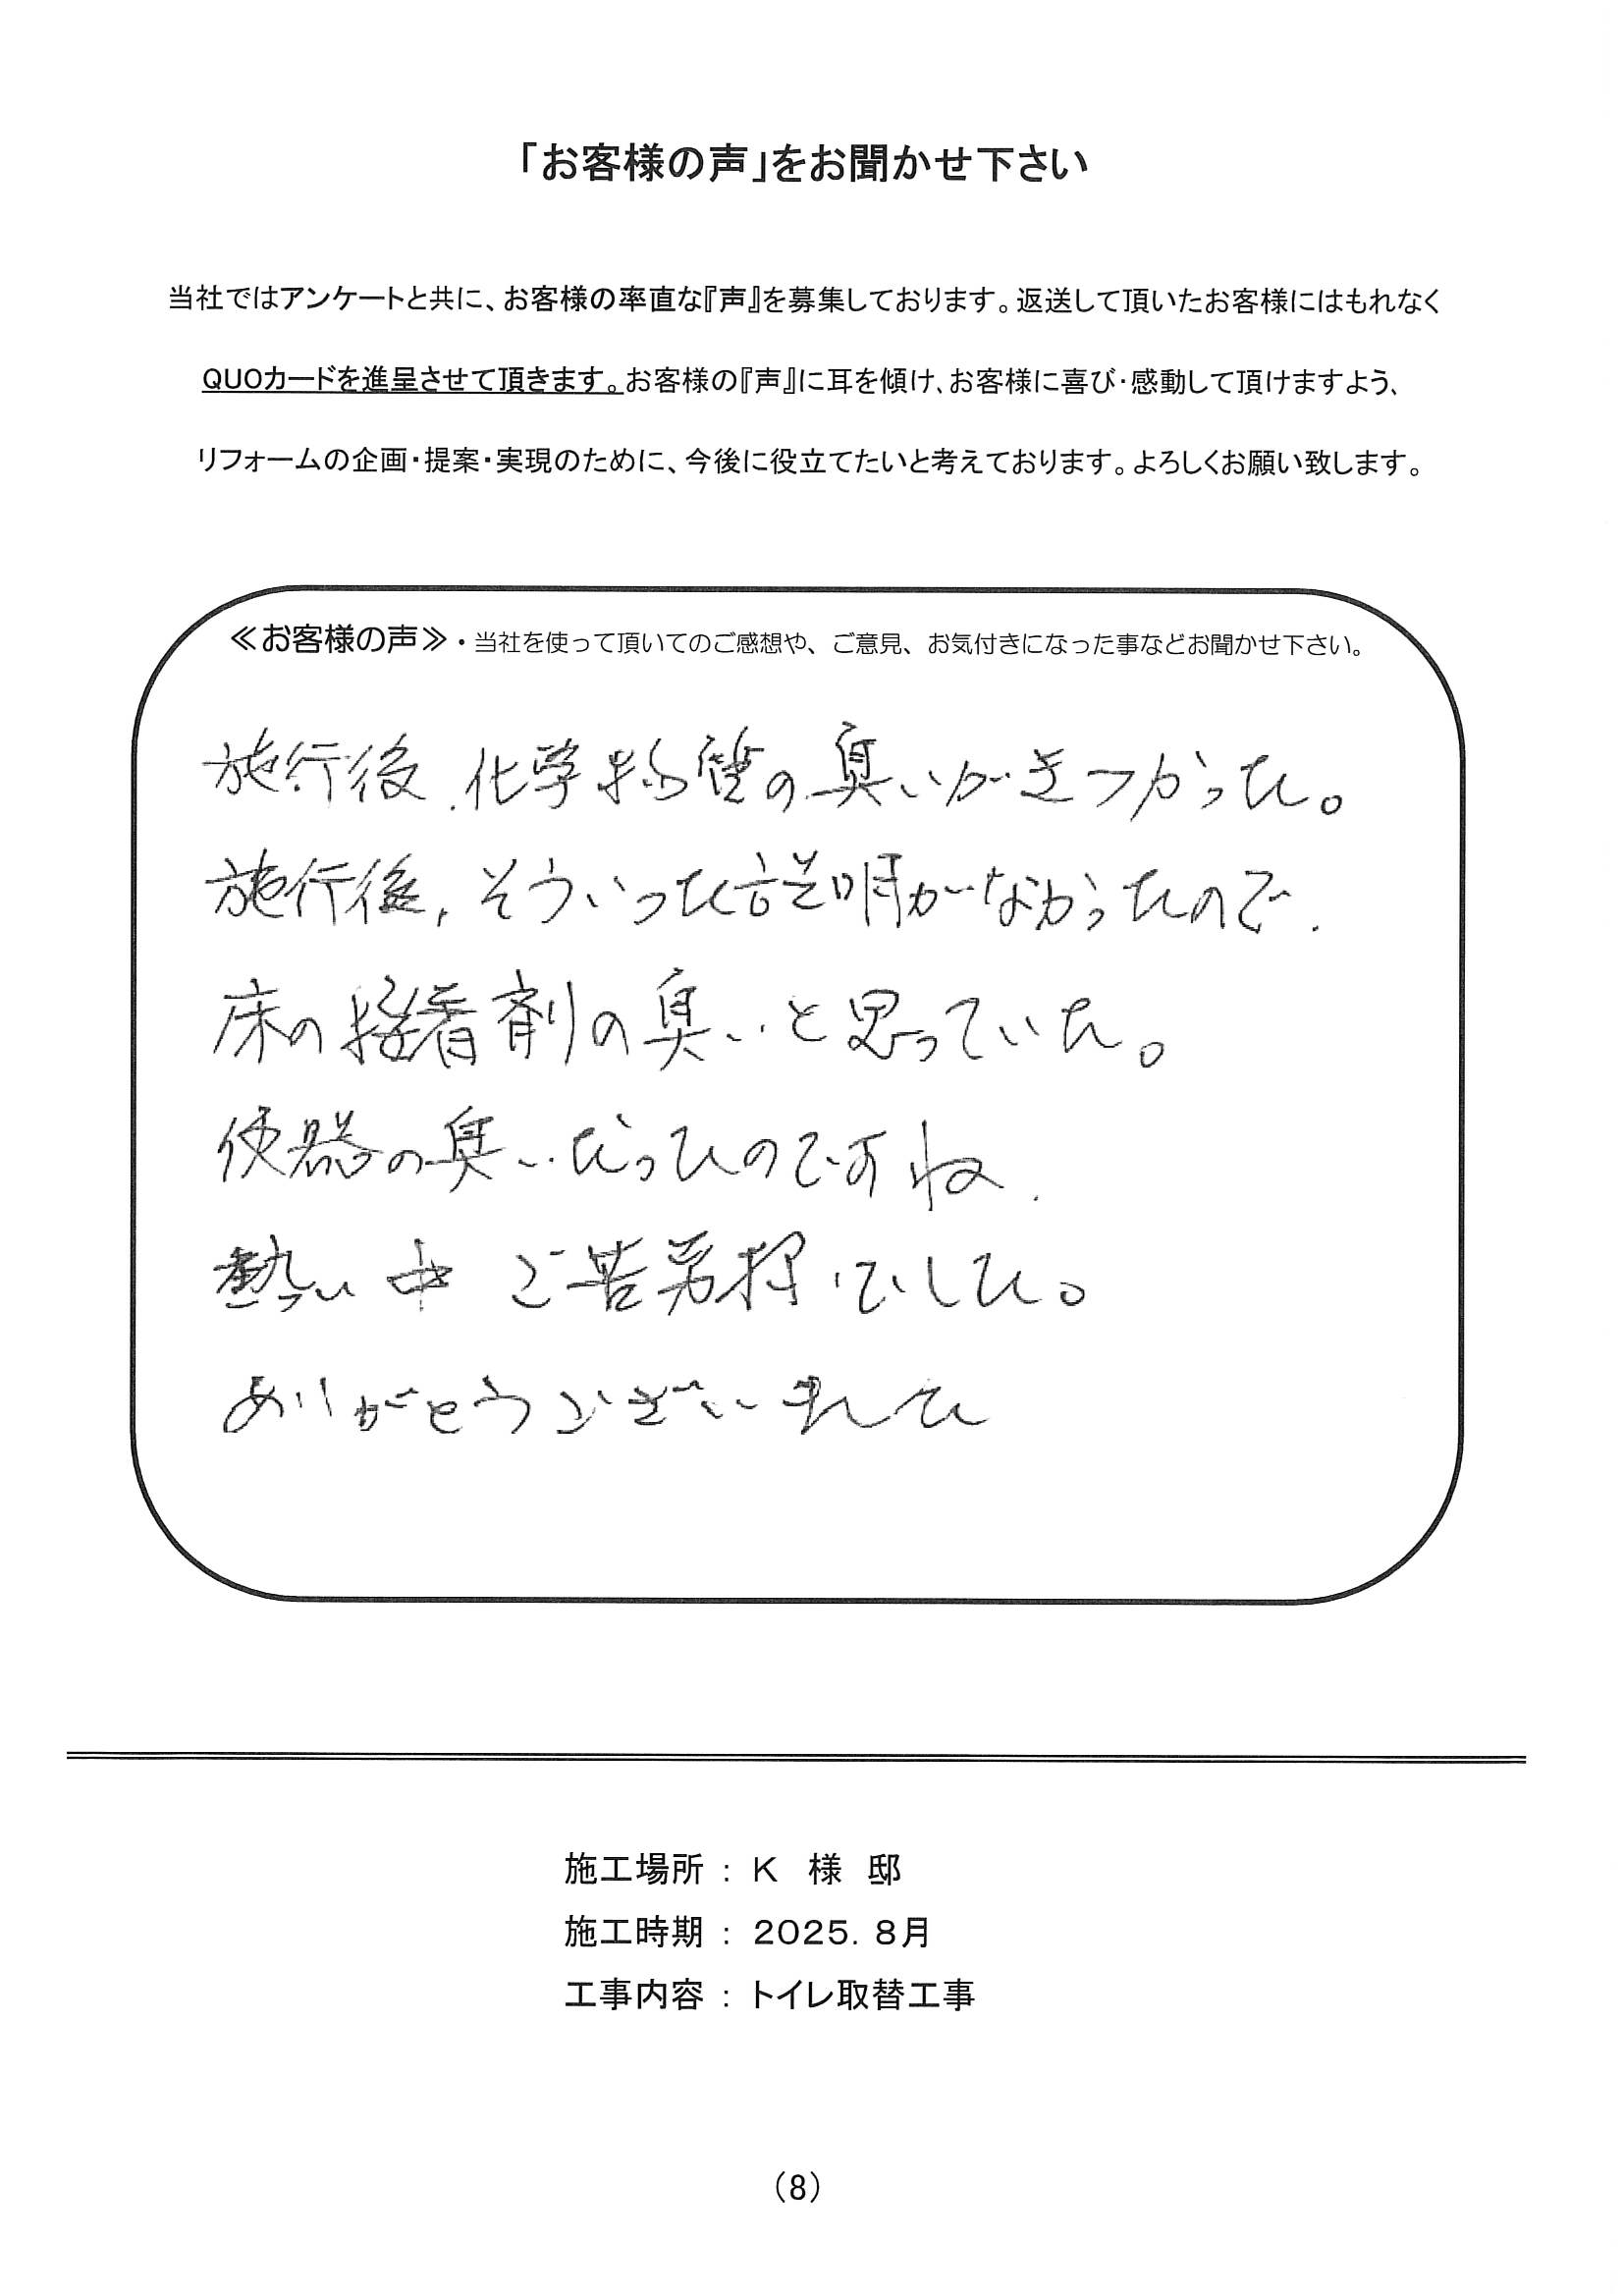 「お客様の声」をお聞かせ下さい
当社ではアンケートと共に、お客様の率直な『声』を募集しております。返送して頂いたお客様にはもれなく
QUOカードを進呈させて頂きます。お客様の『声』に耳を傾け、お客様に喜び・感動して頂けますよう、
リフォームの企画・提案・実現のために、今後に役立てたいと考えております。よろしくお願い致します。
≪お客様の声≫・当社を使って頂いてのご感想や、ご意見、お気付きになった事などお聞かせ下さい。
施行後、化学物質の臭いがきつかった。
施行後、そういった説明がなかったので、
床の接着剤の臭いと思っていた。
便器の臭いだったのですね、
熱い中ご苦労様でした。
ありがとうございました
施工場所 : K 様 邸
施工時期 : 2025. 8月
工事内容 : トイレ取替工事
(8)